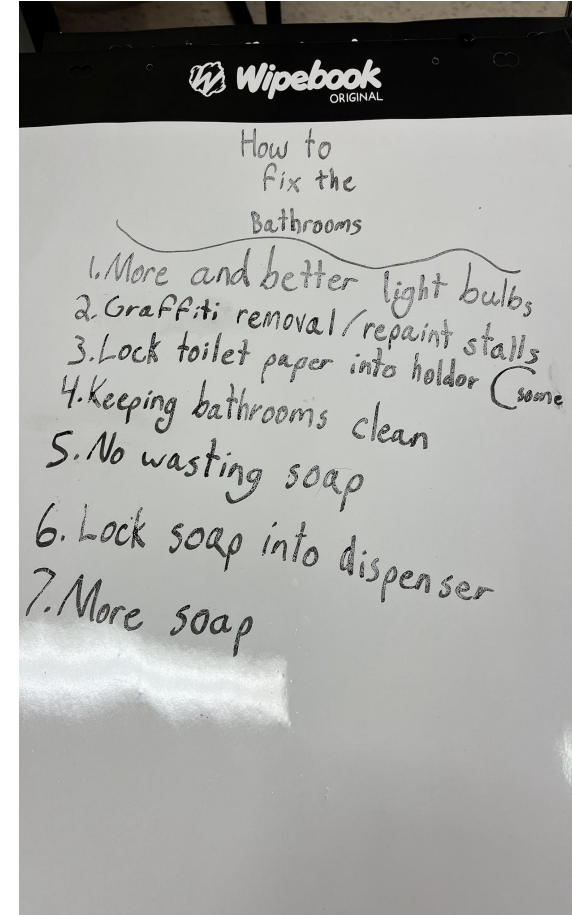 Wipebook
ORIGINAL
How to
fix the
Bathrooms
1. More and better light bulbs
2. Graffiti removal/repaint stalls
3. Lock toilet paper into holdor (some
4. Keeping bathrooms clean
5. No wasting soap
6. Lock soap into dispenser
7. More soap